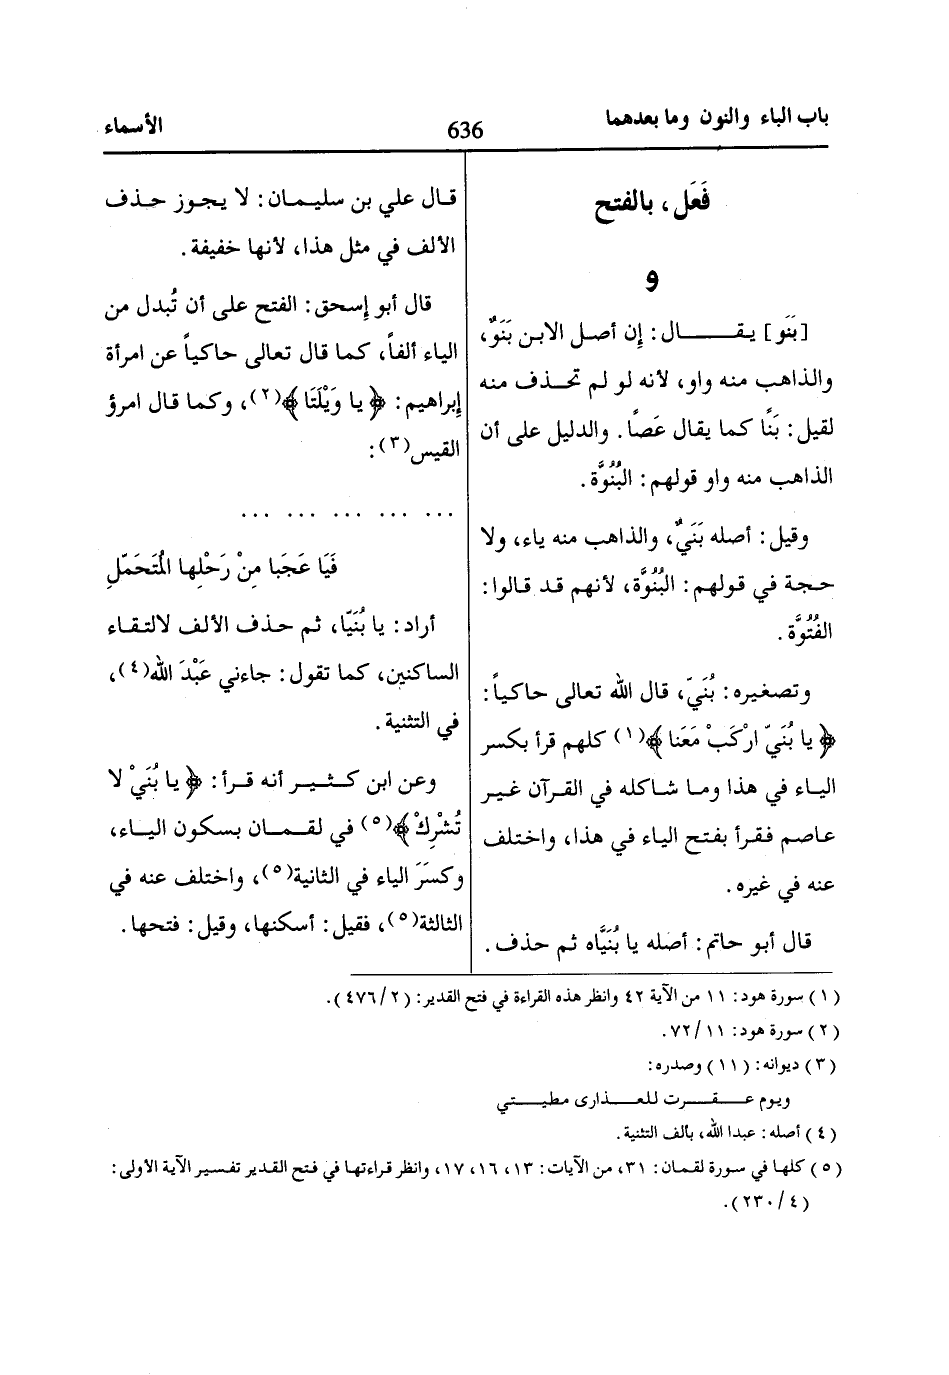 باب الباء والنون وما بعدهما
636
الأسماء
فَعَل، بالفتح
و
[بَنَو] يقـــــال: إن أصل الابـن بَنَوٌ،
والذاهب منه واو، لأنه لو لم تحـذف منه
لقيل: بَنًا كما يقال عَصًا. والدليل على أن
الذاهب منه واو قولهم: البُنُوَّة.
وقيل: أصله بَنَيٌ، والذاهب منه ياء، ولا
حجة في قولهم: البُنُوَّة، لأنهم قد قالوا:
الفُتُوَّة.
وتصغيره: بُنَيّ، قال الله تعالى حاكياً:
﴿يا بُنَيِّ ارْكَبْ مَعَنا﴾(١) كلهم قرأ بكسر
الياء في هذا وما شاكله في القرآن غير
عاصم فقرأ بفتح الياء في هذا، واختلف
عنه في غيره.
قال أبو حاتم: أصله يا بُنَيَّاه ثم حذف.
قال علي بن سليمان: لا يجوز حذف
الألف في مثل هذا، لأنها خفيفة.
قال أبو إسحق: الفتح على أن تُبدل من
الياء ألفاً، كما قال تعالى حاكياً عن امرأة
إبراهيم: ﴿يا وَيْلَتَا﴾(٢)، وكما قال امرؤ
القيس(٣):
... ... ... ... ...
فَيَا عَجَبا مِنْ رَحْلِها المُتَحَمَّلِ
أراد: يا بُنَيّا، ثم حذف الألف لالتقاء
الساكنين، كما تقول: جاءني عَبْدَ الله(٤)،
في التثنية.
وعن ابن كثير أنه قرأ: ﴿يا بُنَيْ لا
تُشْرِكْ﴾(٥) في لقمان بسكون الياء،
وكسَرَ الياء في الثانية(٥)، واختلف عنه في
الثالثة(٥)، فقيل: أسكنها، وقيل: فتحها.
(١) سورة هود: ١١ من الآية ٤٢ وانظر هذه القراءة في فتح القدير: (٢/٤٧٦).
(٢) سورة هود: ١١/٧٢.
(٣) ديوانه: (١١) وصدره:
ويوم عـقـرت للعـذارى مطيـتي
(٤) أصله: عبدا الله، بألف التثنية.
(٥) كلها في سورة لقمان: ٣١، من الآيات: ١٣، ١٦، ١٧، وانظر قراءتها في فتح القدير تفسير الآية الأولى:
(٤/٢٣٠).